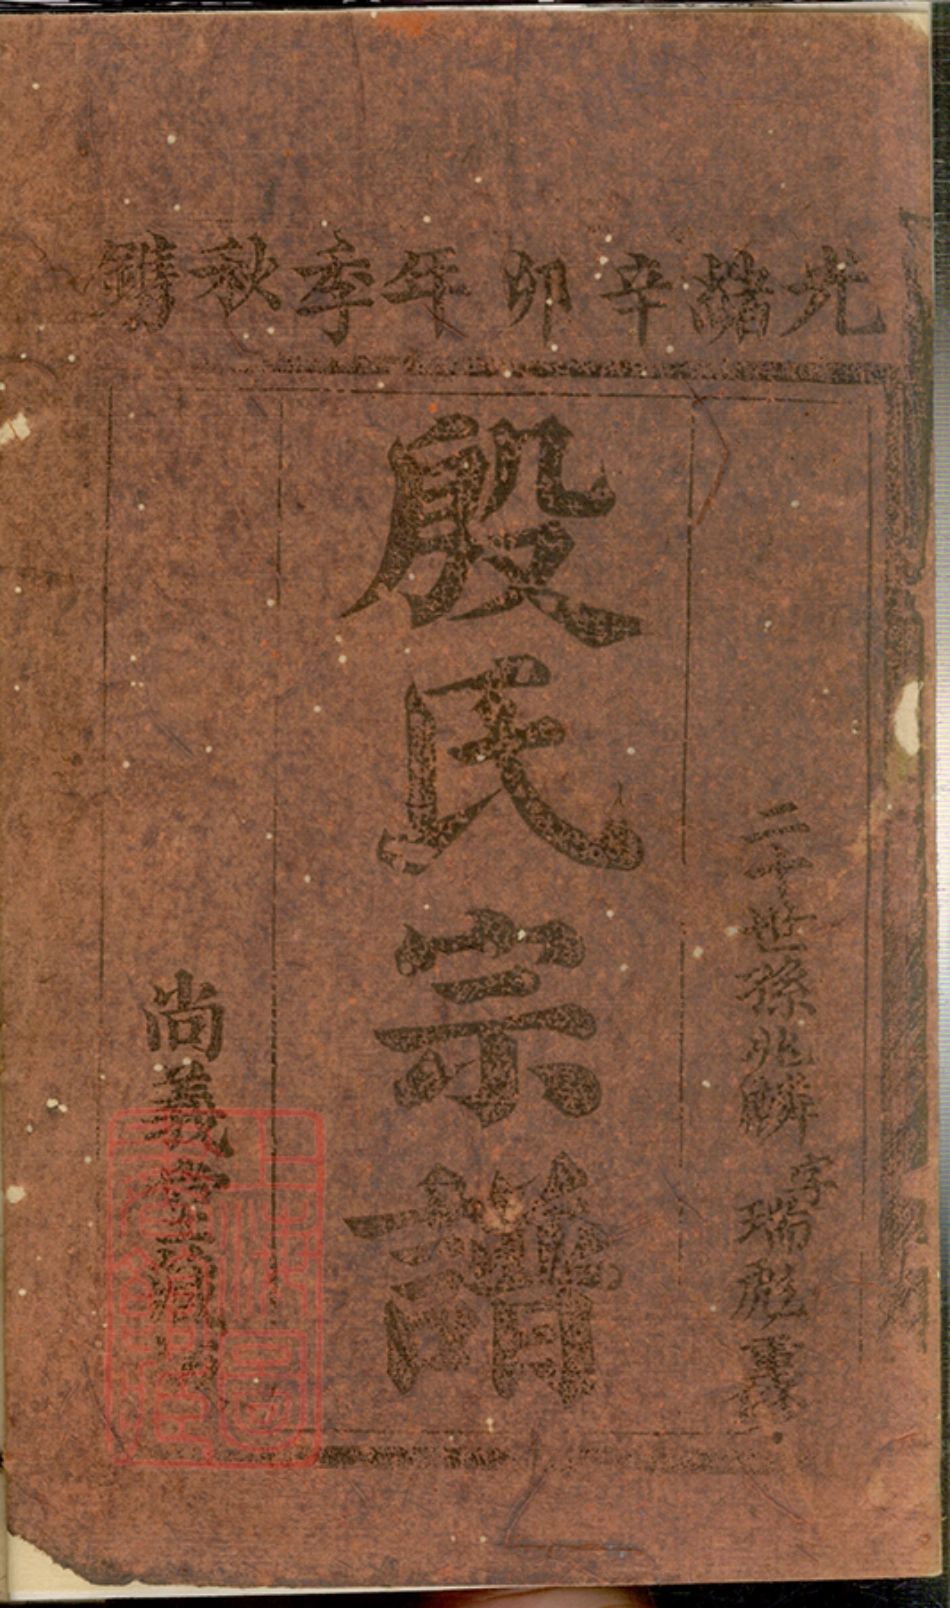 光緒辛卯年季秋鐫
二十世孫兆麟字瑞彪重
殷氏宗譜
尚義堂